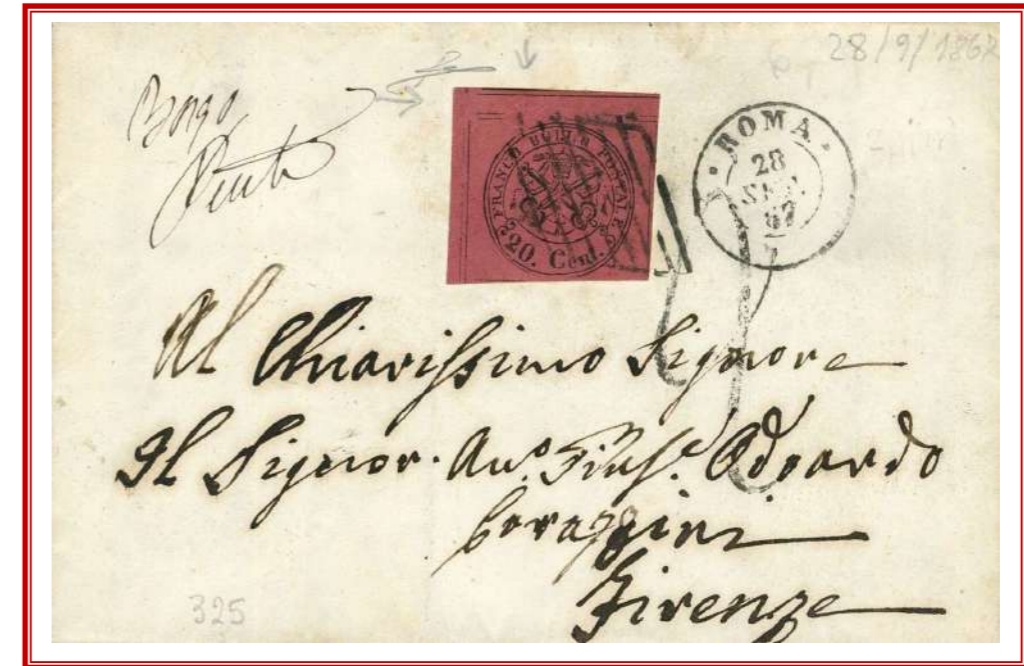 28/9/1867
Borgo
FRANCO BOLLO POSTALE
20. Cent.
ROMA
28
SET.
67
Al Chiarissimo Signore
Il Signor. Odoardo
Firenze
325